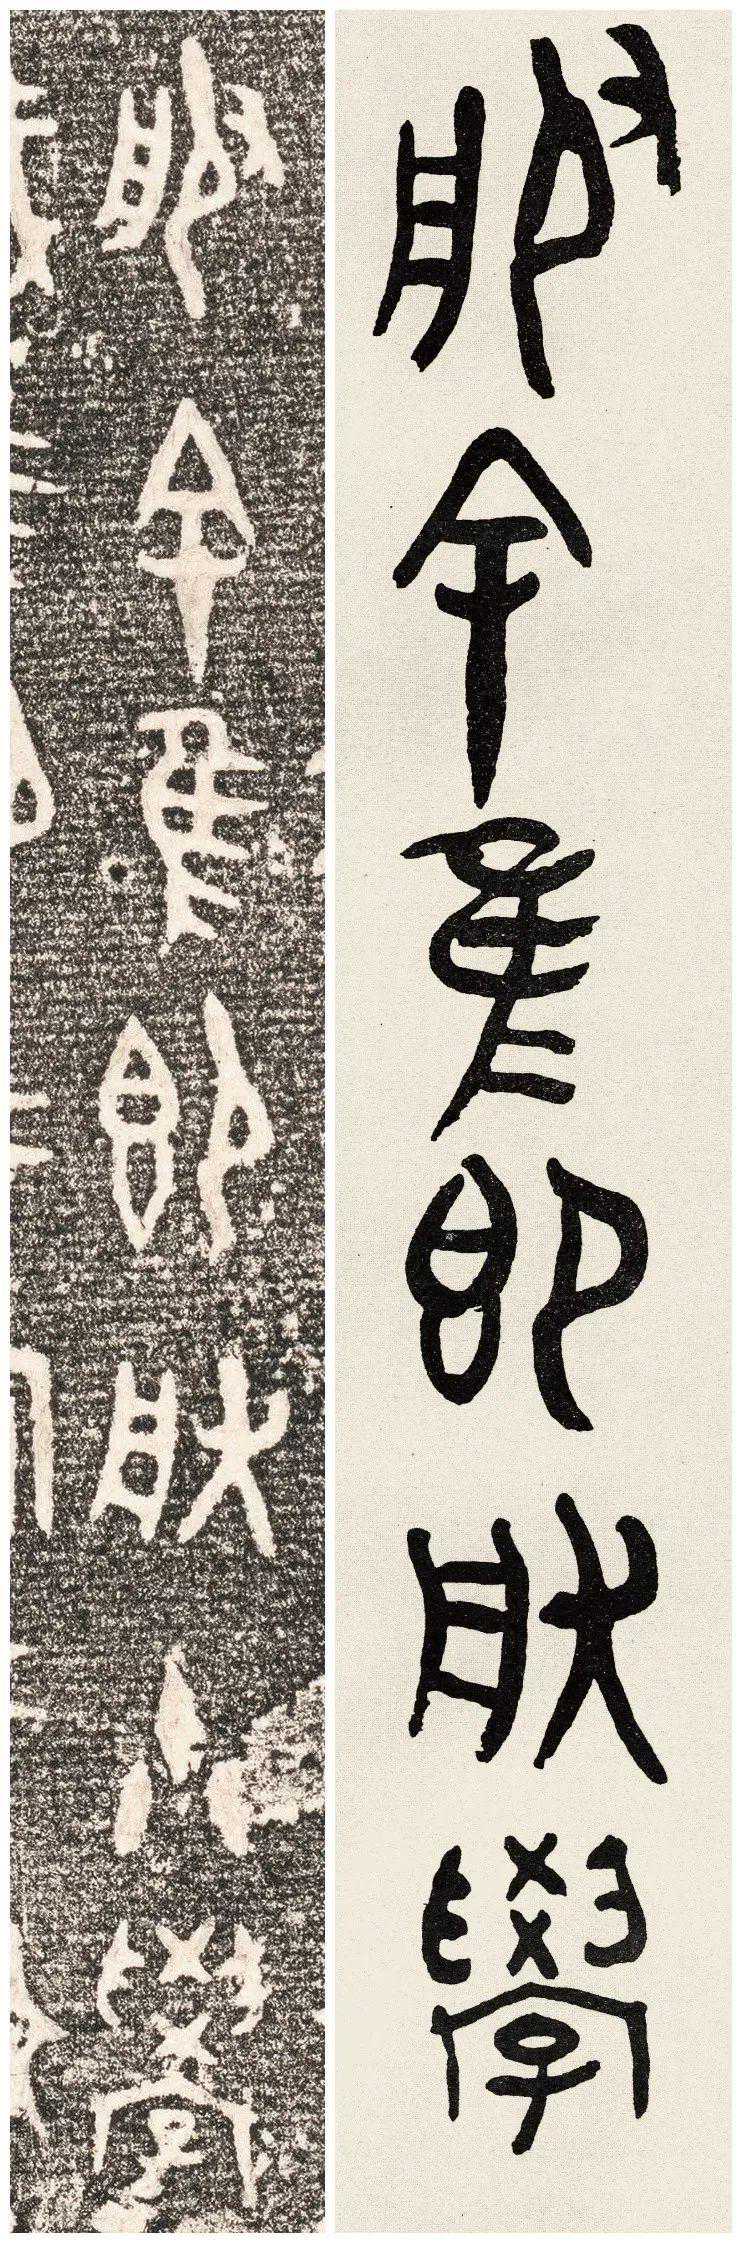 服余隹即朕學
服余隹即朕小學